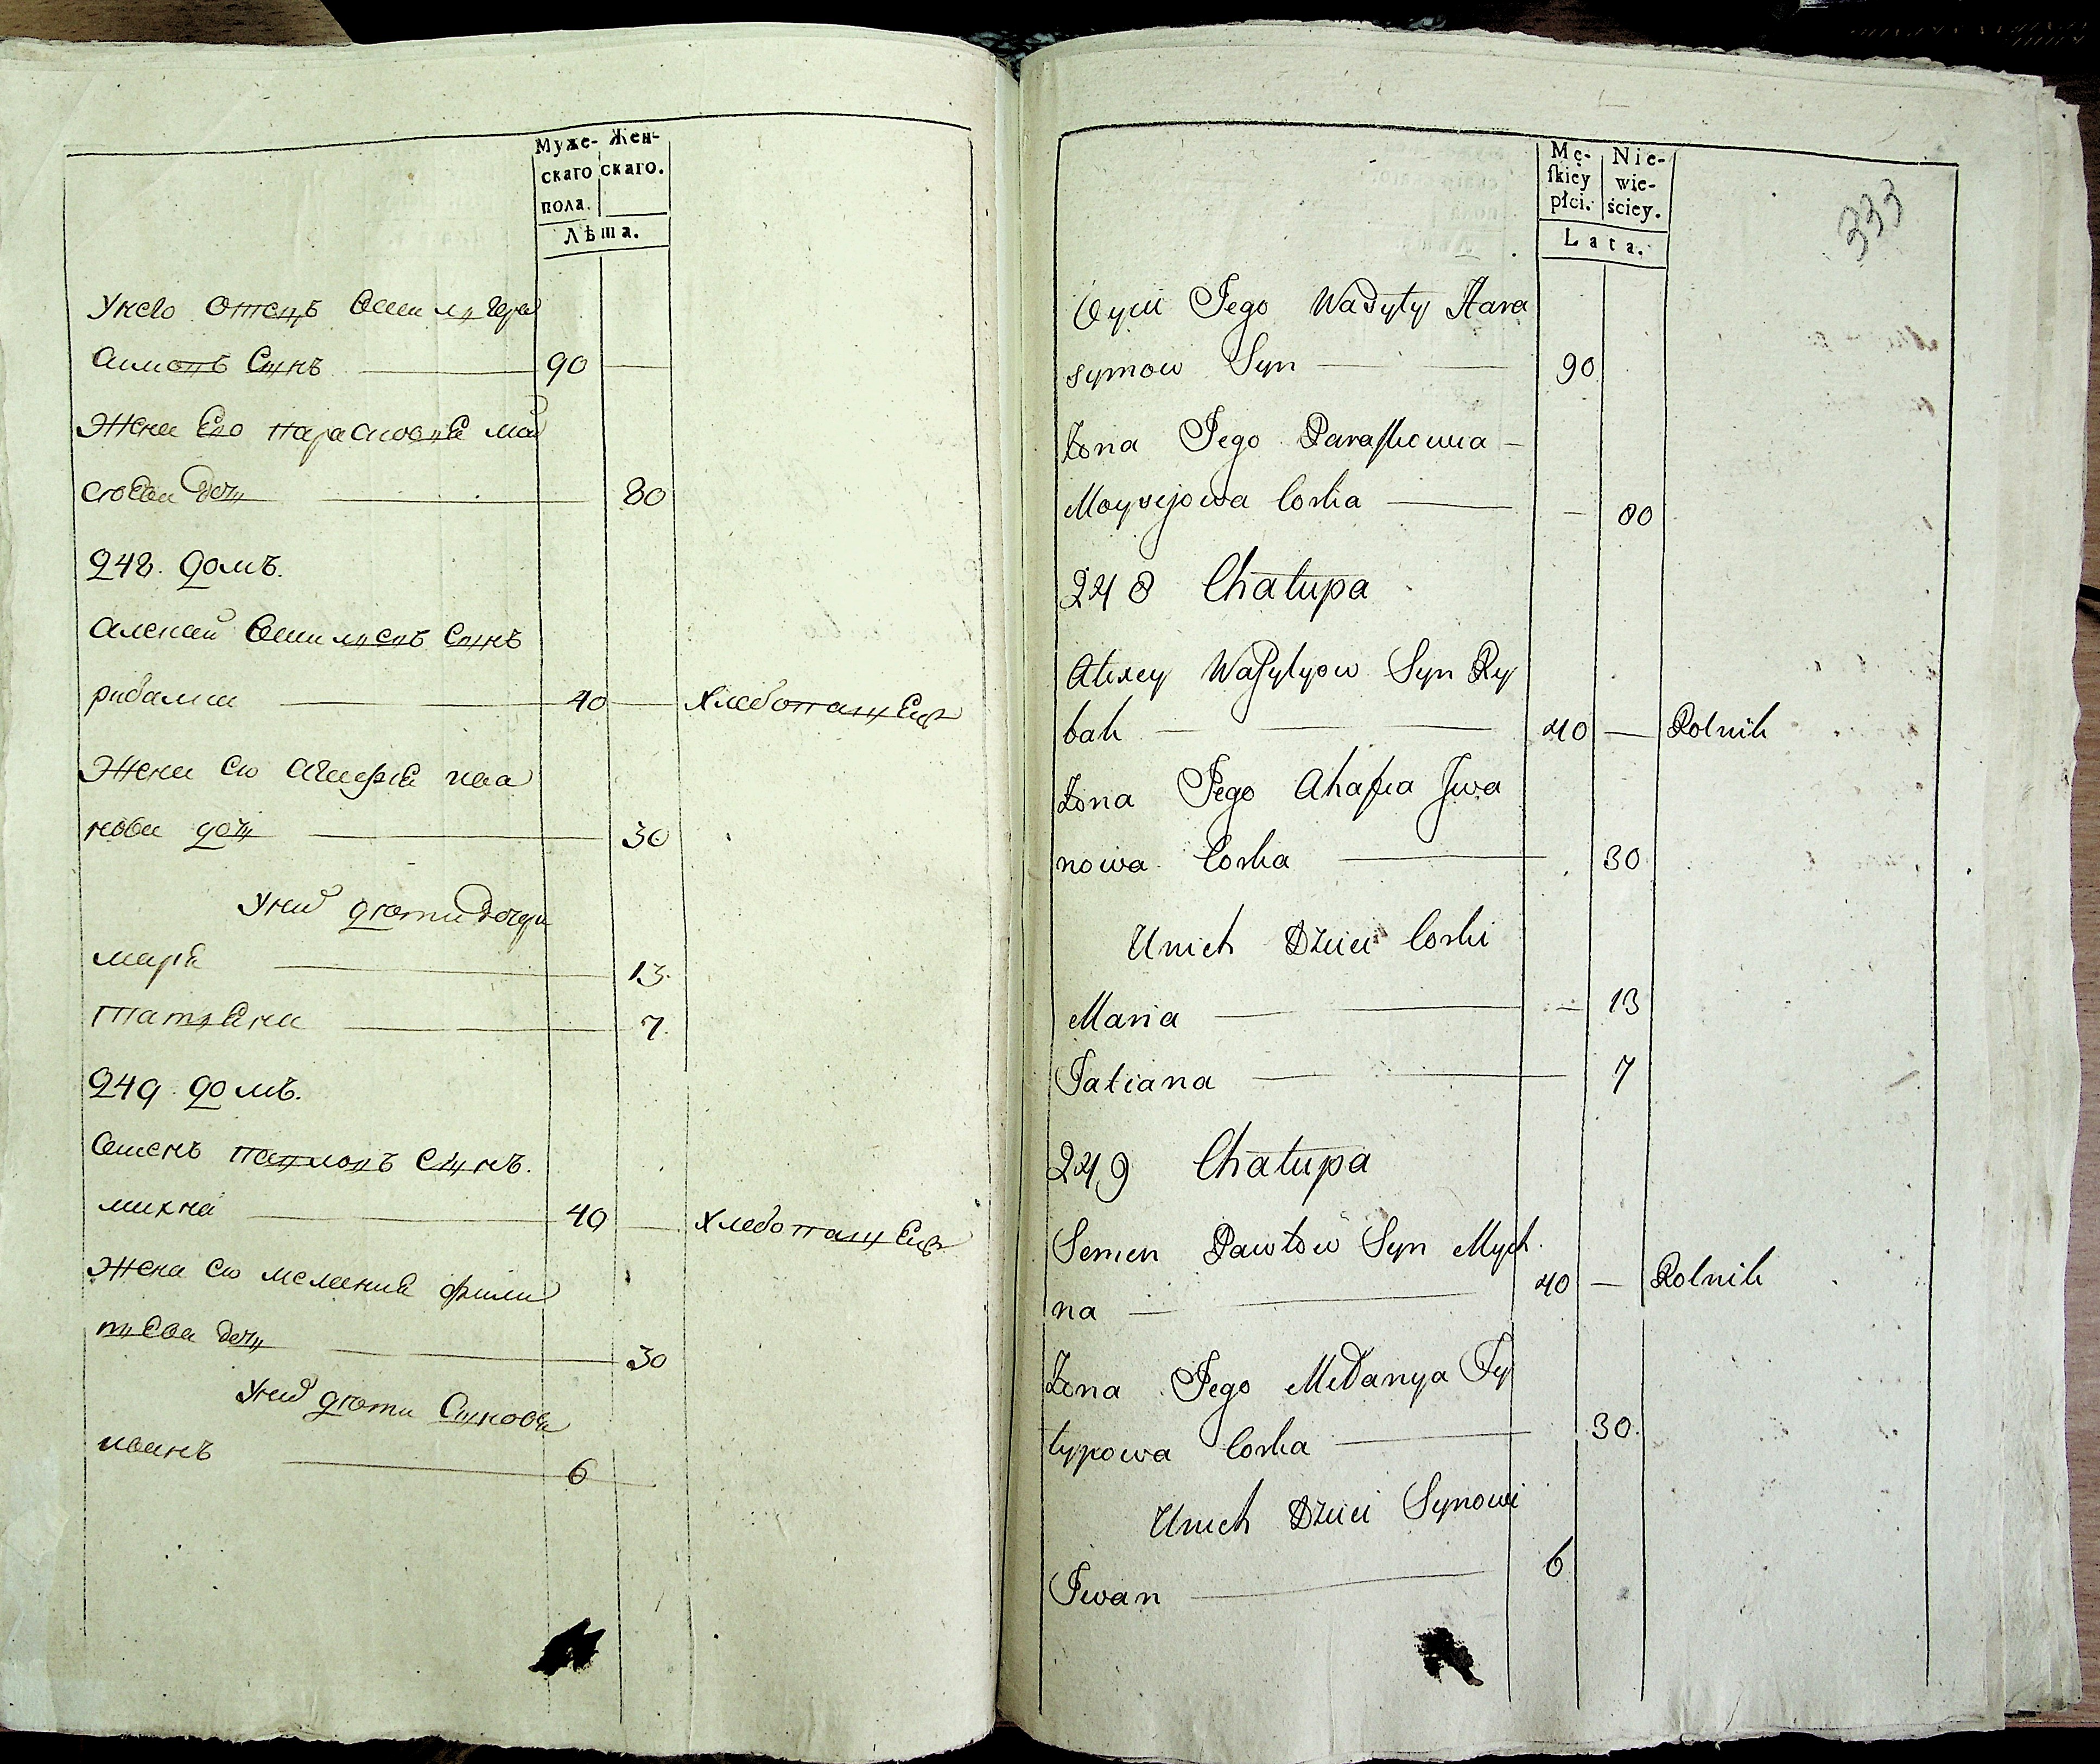 Муже- Жен-
скаго скаго.
пола.
Лѣта.
Унего отецъ Василь Гера
симовъ Сынъ 90
Жена Его парасковья мой
сюева дочь 80
248. домъ.
Алексей Васильевъ Сынъ
рибалка 40 хлебопашецъ
Жена Его Агафья ива
нова дочь 30
Уних дети дочери
марья 13.
татьяна 7.
249. домъ.
Семенъ павловъ Сынъ.
михна 40 хлебопашецъ
Жена Его меланья фили
пьева дочь 30
Уних дети Сыновья
иванъ 6
333
Mę- Nie-
ſkiey wie-
płci. ściey.
Lata.
Oyciec Jego Wasyly Hara
symow Syn 90
Żona Jego Paraskowia
Moysejowa Corka 80
248 Chałupa
Alexey Wasylyow Syn Ry
bak 40 Rolnik
Żona Jego Ahafia Jwa
nowa Corka 30
Unich Dzieci Corki
Maria 13
Tatiana 7
249 Chałupa
Semen Pawłow Syn Mych
na 40 Rolnik
Żona Jego Mełanya Fy
łypowa Corka 30.
Unich Dzieci Synowi
Jwan 6